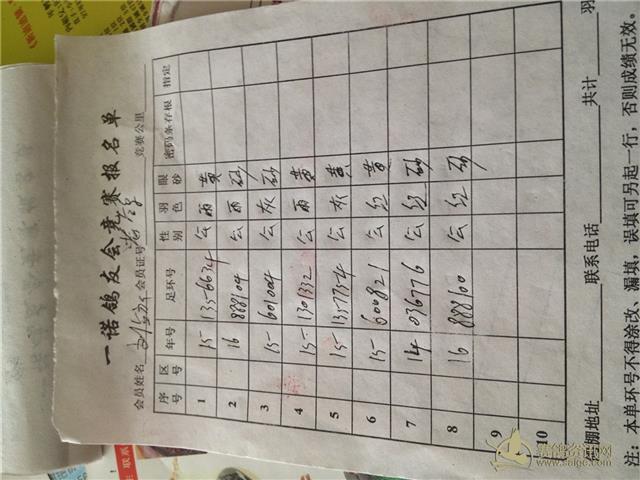 一诺鸽友会章赛报名单
会员姓名 会员证号 竞赛公里
序号 区号 年号 足环号 性别 羽色 眼砂 密码条存根 指定
1 15- 1356634 公 雨 黄
2 16 888104 公 雨 砂
3 15- 601004 公 灰 砂
4 15- 1301332 公 雨 黄
5 15- 1357754 公 灰 黄
6 15- 600821 公 红 黄
7 14 036776 公 红 砂
8 16 888100 公 红 砂
9
10
棚地址 联系电话 共计 羽
注：本单环号不得涂改、漏填，误填可另起一行，否则成绩无效。
www.saige.com